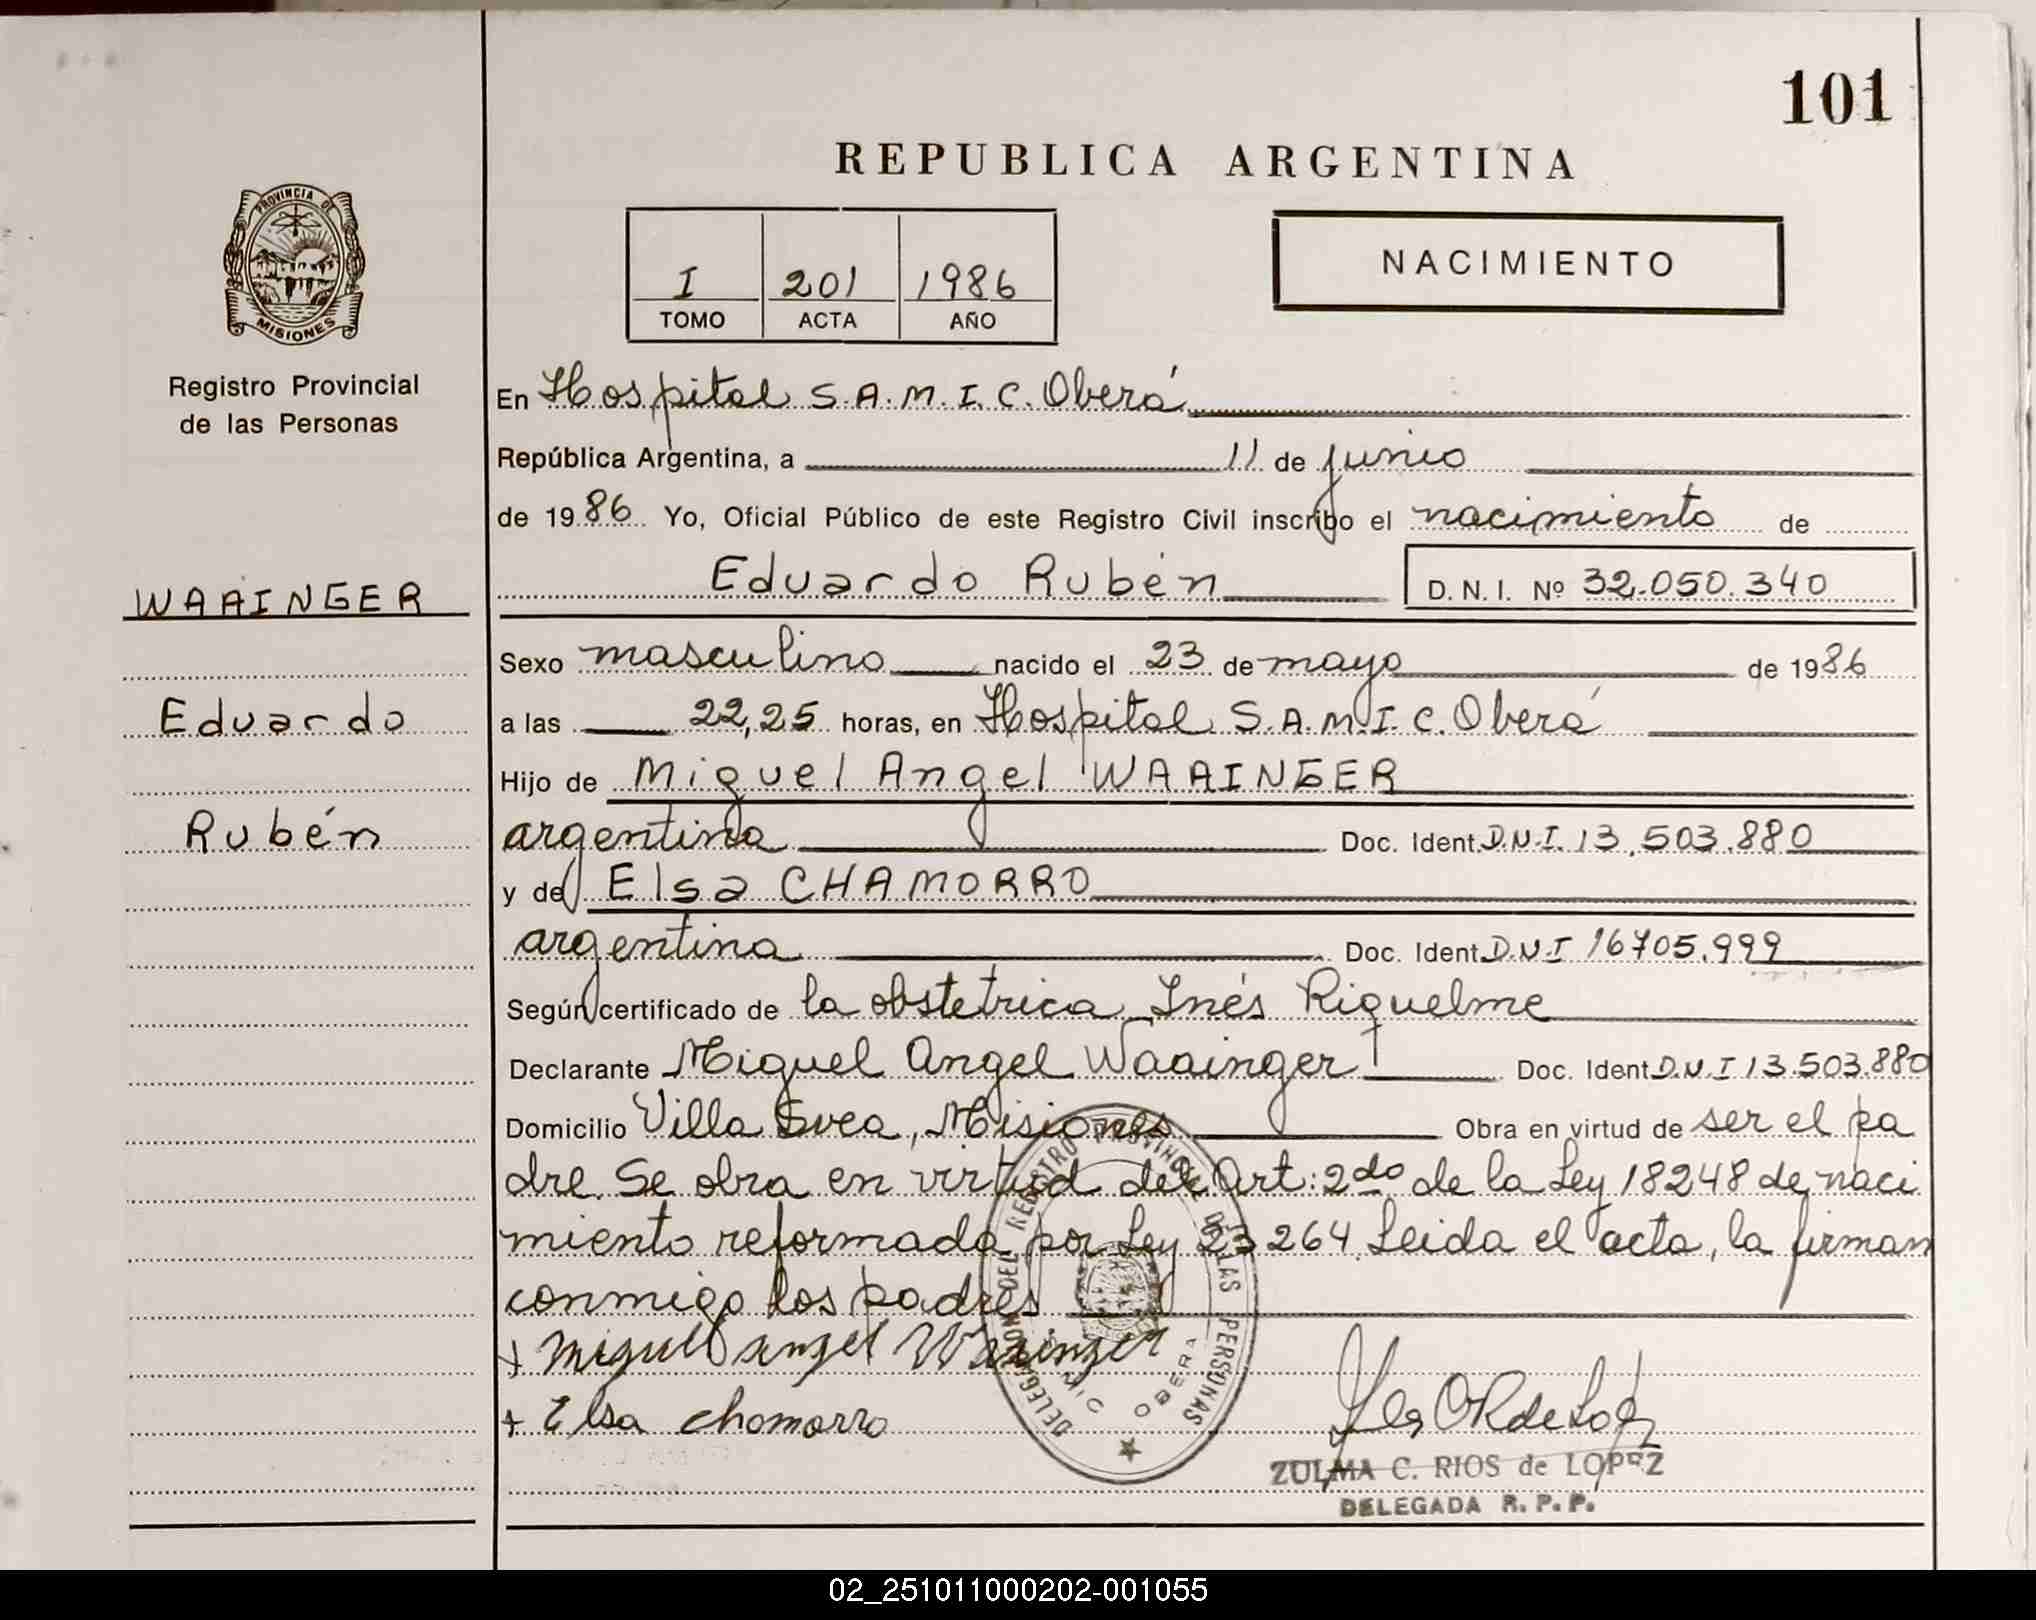 101
REPUBLICA ARGENTINA
I 201 1986
TOMO ACTA AÑO
NACIMIENTO
PROVINCIA DE
MISIONES
Registro Provincial
de las Personas
WAAINGER
Eduardo
Rubén
En Hospital S.A.M.I.C. Oberá
República Argentina, a 11 de junio
de 1986 Yo, Oficial Público de este Registro Civil inscribo el nacimiento de
Eduardo Rubén D.N.I. Nº 32.050.340
Sexo masculino nacido el 23 de mayo de 1986
a las 22,25 horas, en Hospital S.A.M.I.C. Oberá
Hijo de Miguel Angel WAAINGER
argentina Doc. Ident. D.N.I. 13.503.880
y de Elsa CHAMORRO
argentina Doc. Ident. D.N.I 16705.999
Según certificado de la obstetrica Inés Riquelme
Declarante Miguel Angel Waainger Doc. Ident. D.N.I 13.503.880
Domicilio Villa Svea, Misiones Obra en virtud de ser el pa
dre. Se obra en virtud del Art: 2do de la Ley 18248 de naci
miento reformada por Ley 23264. Leida el acta, la firman
conmigo los padres
+ Miguel angel Waainger
+ Elsa chamorro
DELEGACION DEL REGISTRO PROVINCIAL DE LAS PERSONAS
SAMIC OBERA
ZULMA C. RIOS de LOPEZ
DELEGADA R. P. P.
02_251011000202-001055